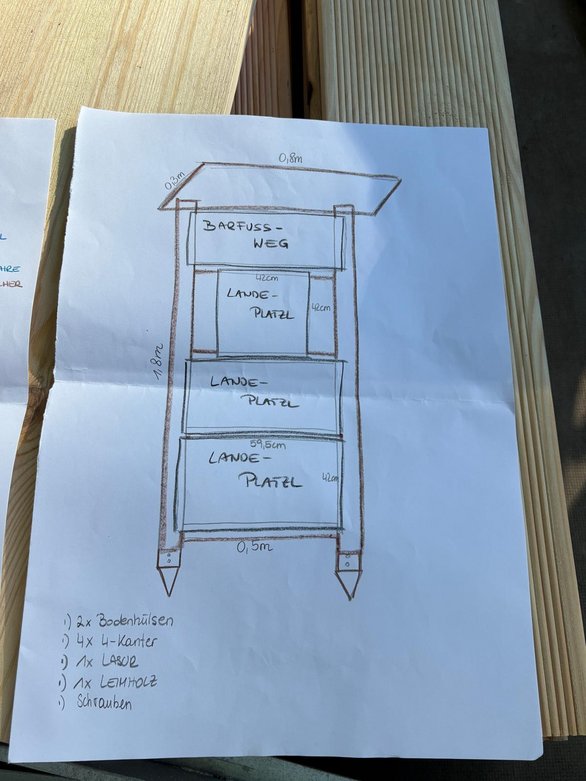 L
AIRE
HER
0,8m
0,3m
BARFUSS-
WEG
42cm
LANDE-
PLATZL
42cm
1,8m
LANDE-
PLATZL
59,5cm
LANDE-
PLATZL
42cm
0,5m
1) 2x Bodenhülsen
1) 4x 4-Kanter
1) 1x LASUR
1) 1x LEIMHOLZ
1) Schrauben